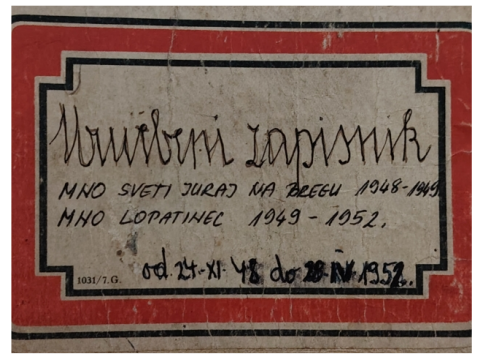 Uručbeni zapisnik
MNO SVETI JURAJ NA BREGU 1948-1949.
MNO LOPATINEC 1949 - 1952.
od 24.-XI. 48 do 28 IV. 1952.
1031/7.G.